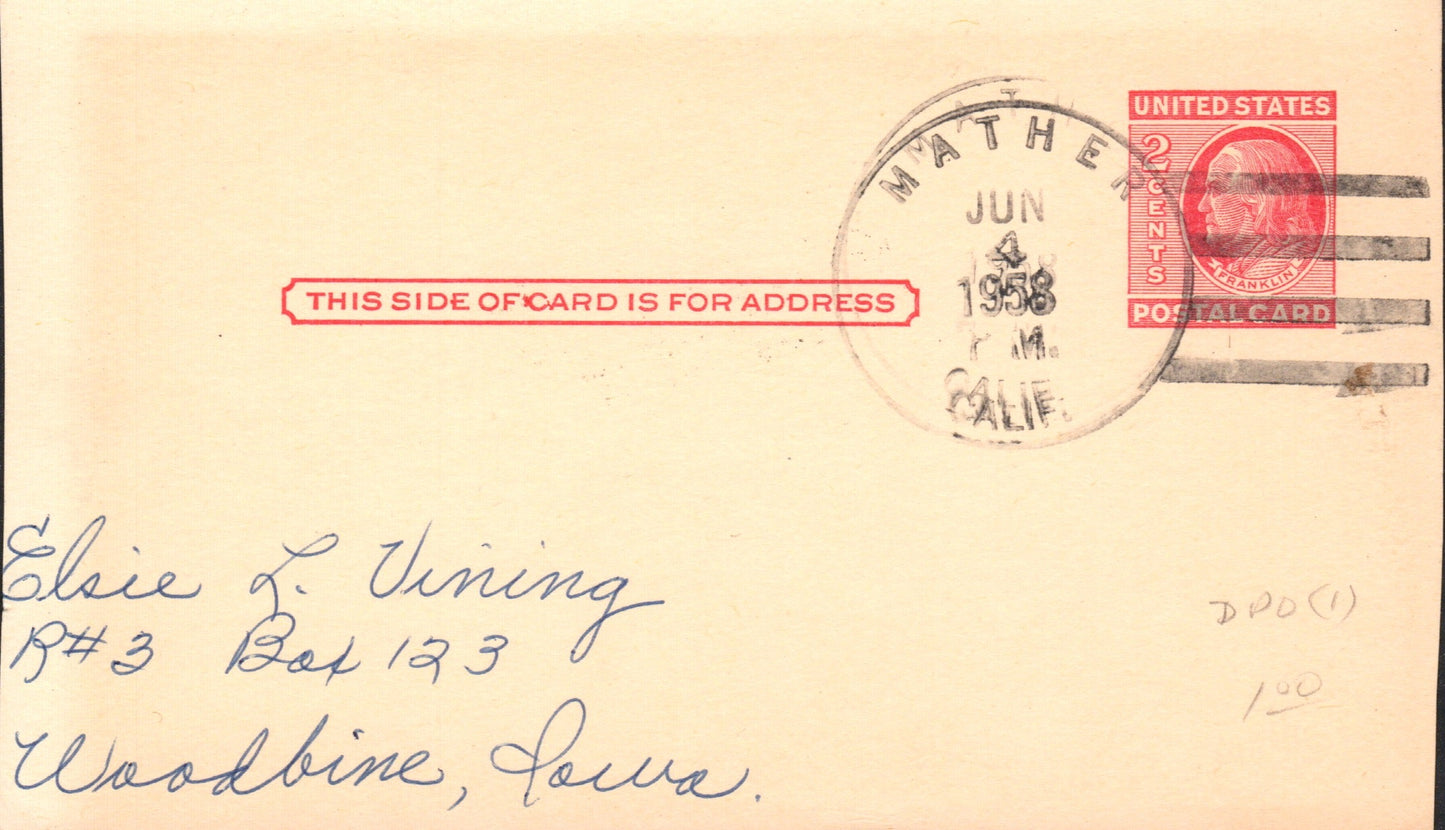 UNITED STATES
2 CENTS
FRANKLIN
POSTAL CARD
MATHER
JUN
4
1958
P M.
CALIF.
THIS SIDE OF CARD IS FOR ADDRESS
Elsie L. Vining
R#3 Box 123
Woodbine, Iowa.
DPO (1)
1.00